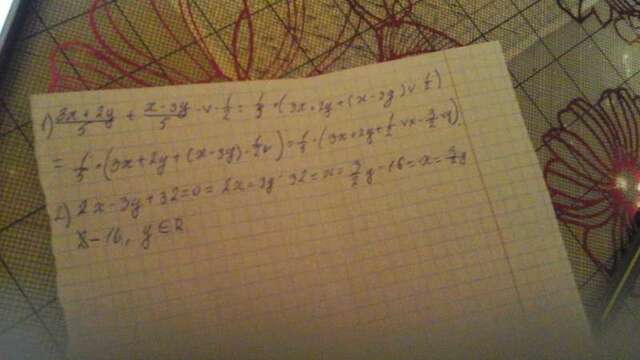 1) (3x+2y)/5 + (x-3y)/5 · v · 1/2 = 1/5 · (3x+2y+(x-3y)v 1/2)
= 1/5 · (3x+2y+(x-3y) · 1/2 v) = 1/5 · (3x+2y+ 1/2 vx - 3/2 vy)
2) 2x-3y+32=0 = 2x=3y-32 = x = 3/2 y - 16 = x = 3/2 y
-16, y∈R